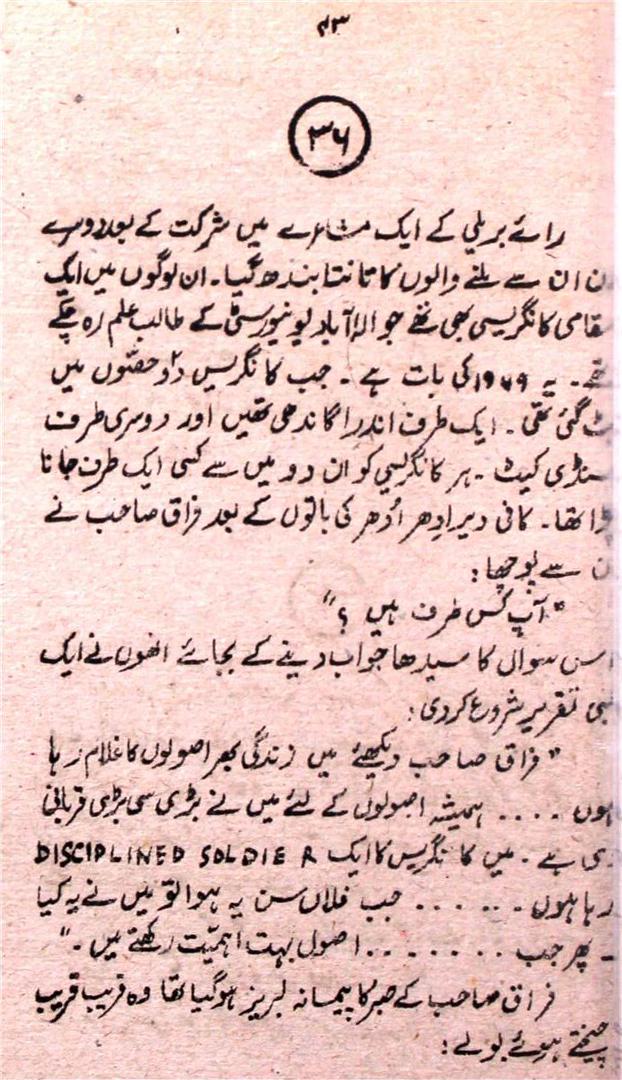 ۴۳
۳۶
رائے بریلی کے ایک مشاعرے میں شرکت کے بعد دوسرے
دن ان سے ملنے والوں کا تانتا بندھ گیا۔ ان لوگوں میں ایک
مقامی کانگریسی بھی تھے جو الہٰ آباد یونیورسٹی کے طالب علم رہ چکے
تھے۔ یہ ۱۹۶۹ کی بات ہے۔ جب کانگریس دو حصّوں میں
بٹ گئی تھی۔ ایک طرف اندرا گاندھی تھیں اور دوسری طرف
سنڈی کیٹ۔ ہر کانگریسی کو ان دو میں سے کسی ایک طرف جانا
پڑا تھا۔ کافی دیر اِدھر اُدھر کی باتوں کے بعد فراق صاحب نے
ان سے پوچھا:
"آپ کس طرف ہیں ؟"
اس سوال کا سیدھا جواب دینے کے بجائے انھوں نے ایک
لمبی تقریر شروع کر دی:
"فراق صاحب دیکھئے میں زندگی بھر اصولوں کا غلام رہا
ہوں .... ہمیشہ اصولوں کے لئے میں نے بڑی سی بڑی قربانی
دی ہے۔ میں کانگریس کا ایک DISCIPLINED SOLDIER
رہا ہوں ...... جب فلاں سن یہ ہوا تو میں نے یہ کیا
۔ پھر جب ........ اصول بہت اہمیّت رکھتے ہیں۔"
فراق صاحب کے صبر کا پیمانہ لبریز ہو گیا تھا وہ قریب قریب
چیختے ہوئے بولے: